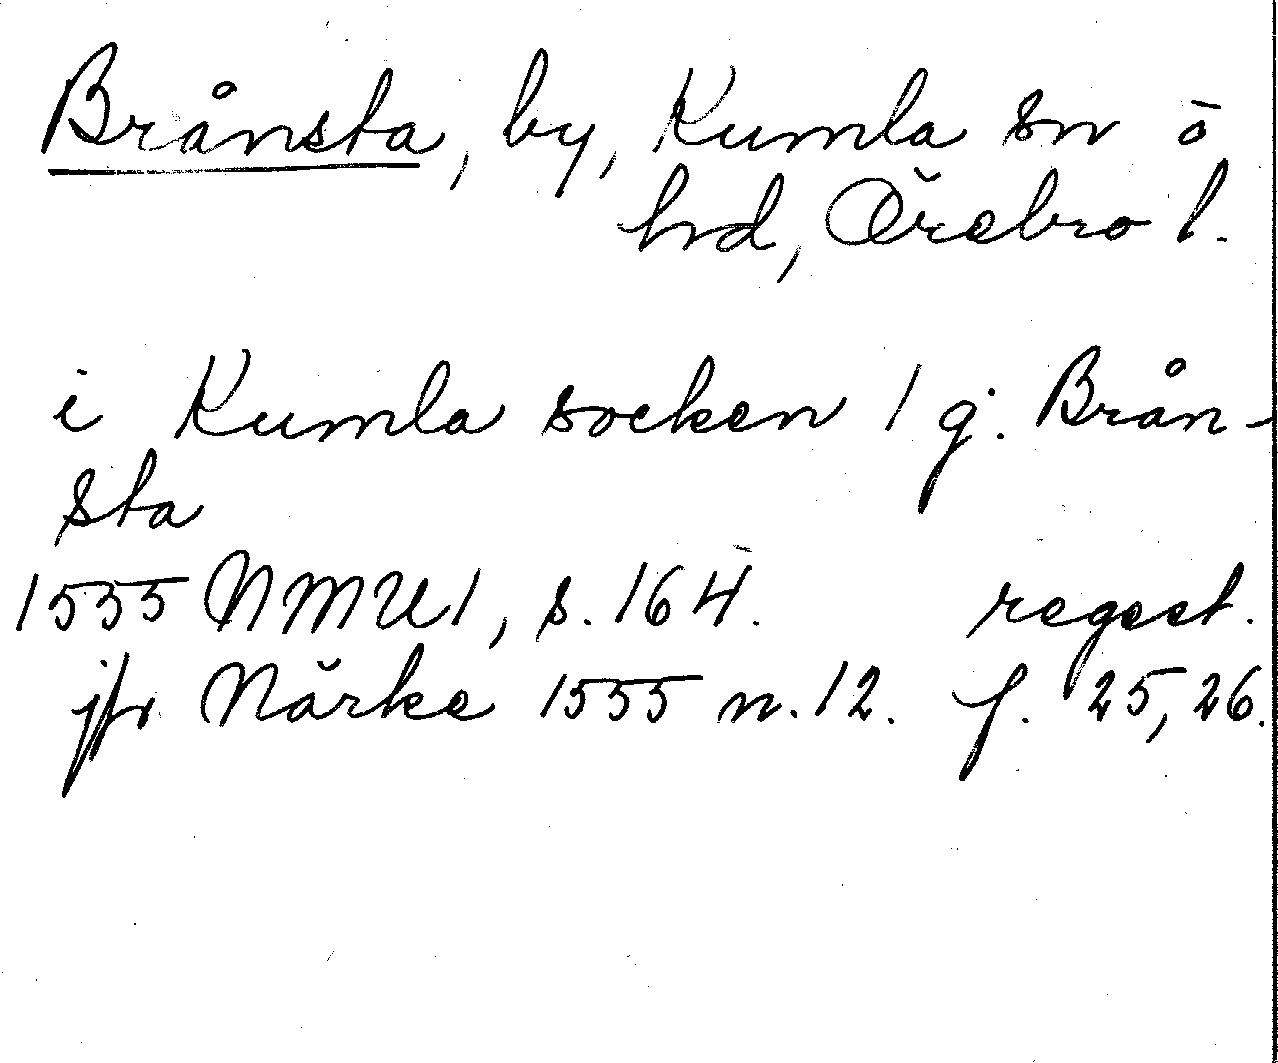 Brånsta, by, Kumla sn o
hrd, Örebro l.
i Kumla socken 1 g. Brån-
sta
1555 NMU1, s. 164. regest.
jfr Närke 1555 n. 12. f. 25, 26.